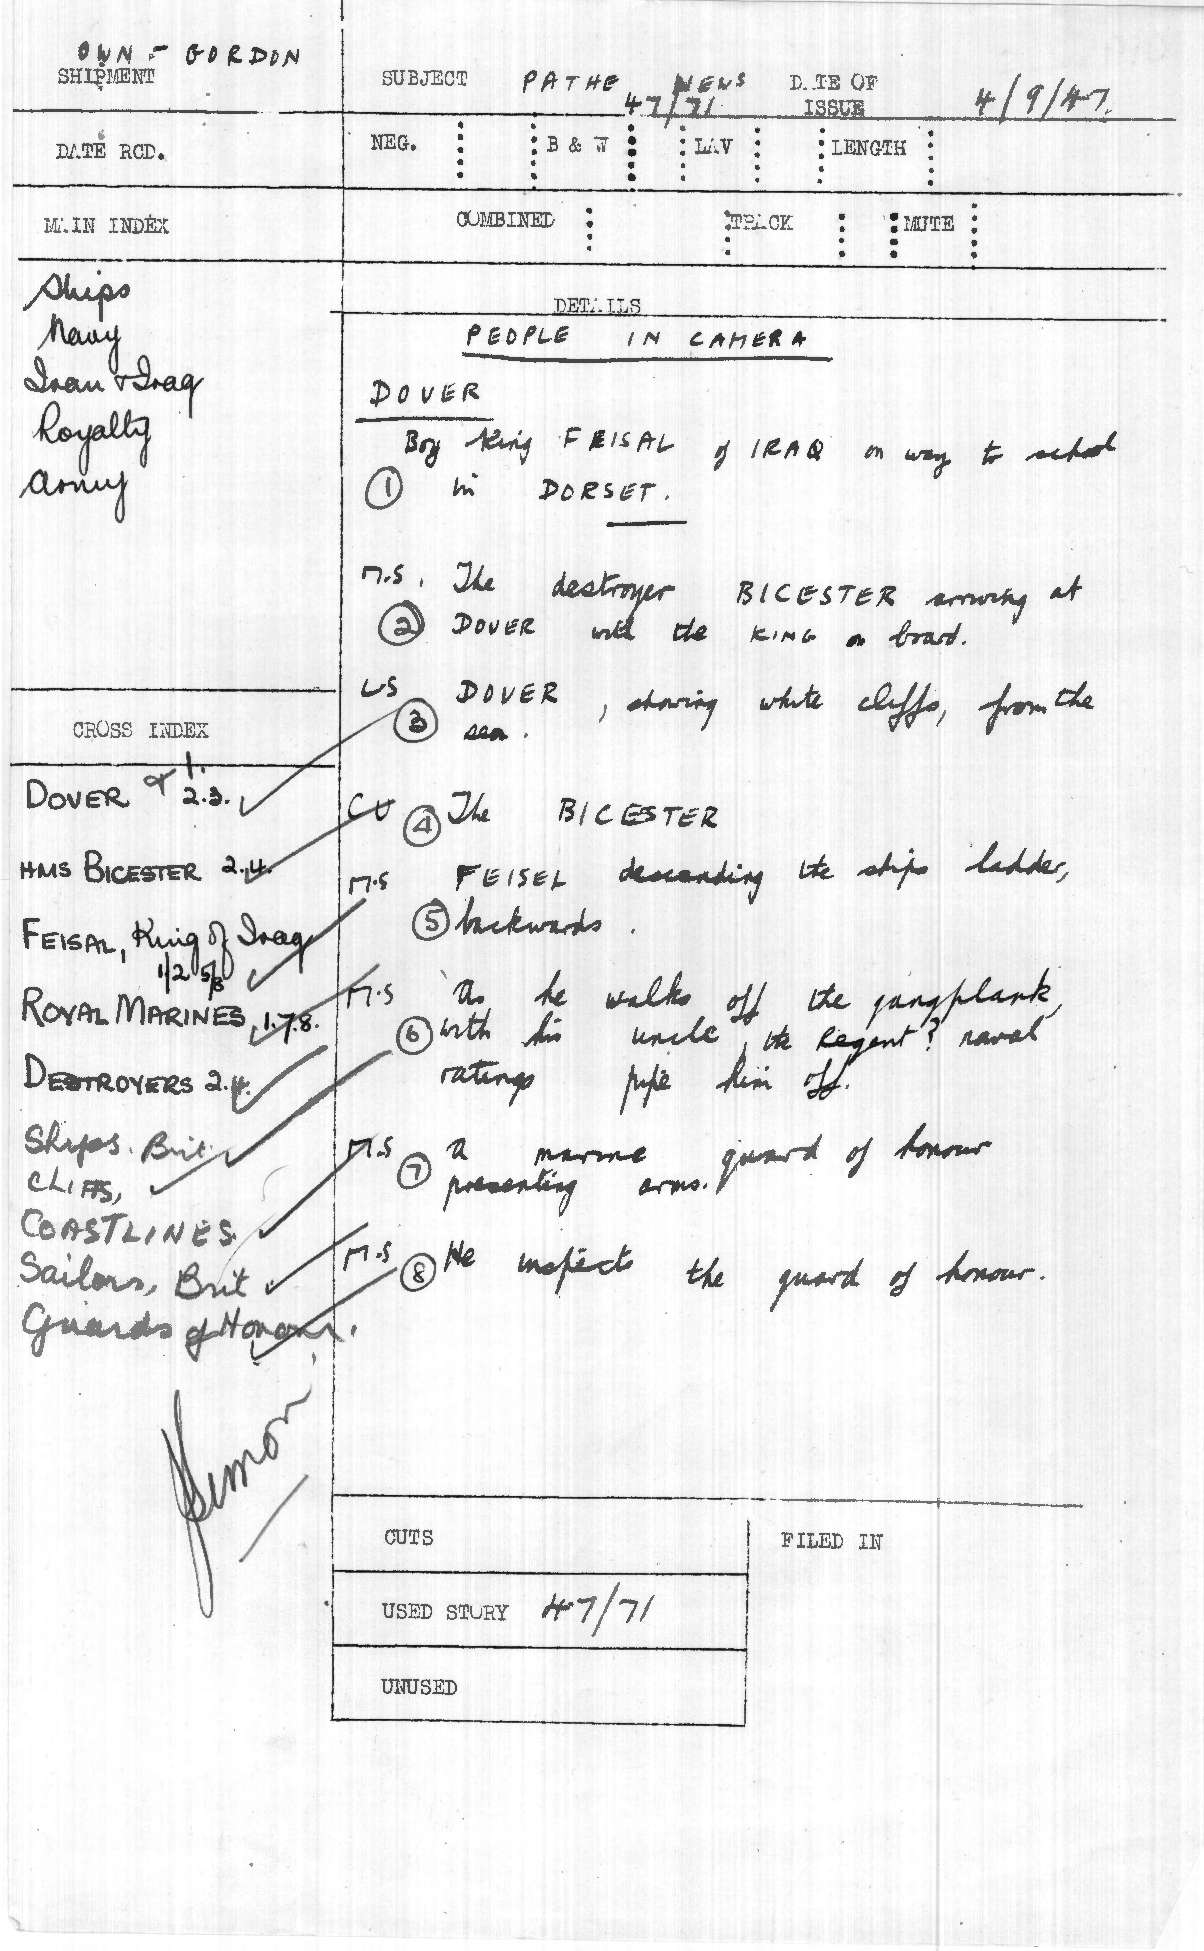 OWN - GORDON
SHIPMENT
SUBJECT PATHE NEWS
47/71
DATE OF
ISSUE
4/9/47.
DATE RCD.
NEG. B & W LAV LENGTH
MAIN INDEX
COMBINED TRACK MUTE
Ships
Navy
Iran & Iraq
Royalty
Army
DETAILS
PEOPLE IN CAMERA
DOVER
Boy King FEISAL of IRAQ on way to school
1 in DORSET.
M.S. The destroyer BICESTER arriving at
2 DOVER with the KING on board.
LS DOVER, showing white cliffs, from the
3 sea.
CU 4 The BICESTER
M.S FEISEL descending the ships ladder,
5 backwards.
M.S As he walks off the gangplank,
6 with his uncle, the Regent? naval
ratings pipe him off.
M.S A marine guard of honour
7 presenting arms.
M.S 8 He inspects the guard of honour.
CROSS INDEX
DOVER & 1.
2.3.
HMS BICESTER 2.4.
FEISAL, King of Iraq
1/2 5/8
ROYAL MARINES 1.7.8.
DESTROYERS 2.4.
Ships. Brit
CLIFFS,
COASTLINES.
Sailors, Brit
Guards of Honour.
CUTS
FILED IN
USED STORY 47/71
UNUSED